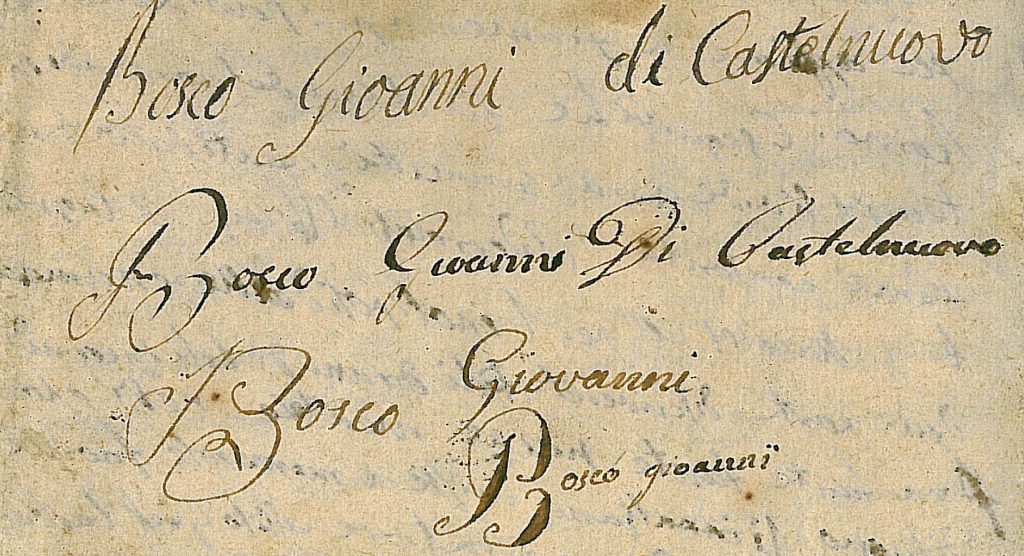 Bosco Gioanni di Castelnuovo
Bosco Gioanni Di Castelnuovo
Bosco Giovanni
Bosco gioanni